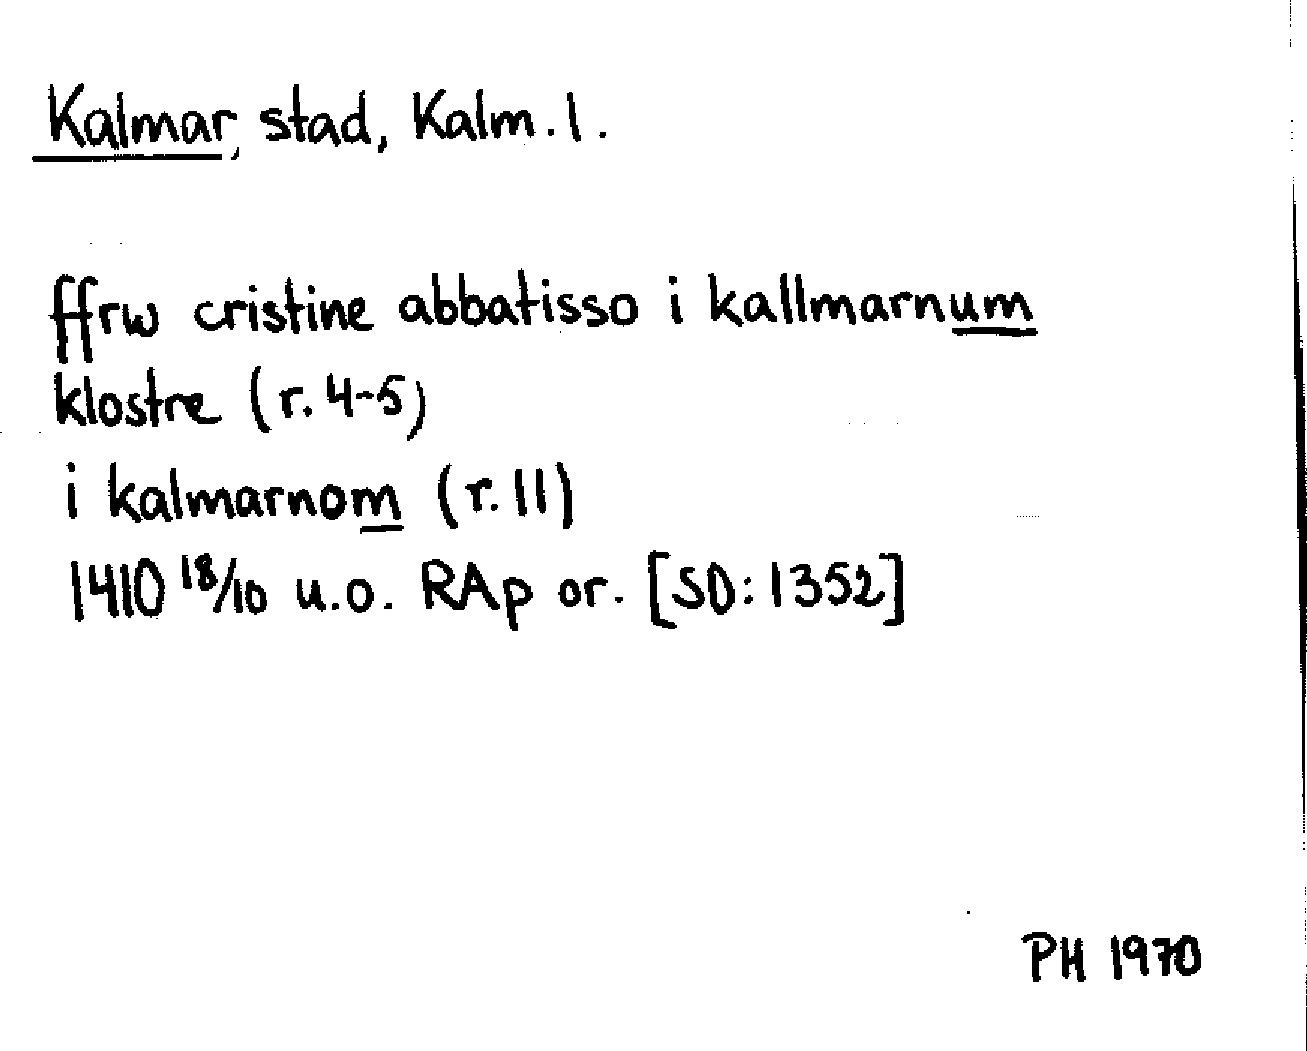 Kalmar, stad, Kalm. l.
ffrw cristine abbatisso i kallmarnum
klostre (r. 4-5)
i kalmarnom (r. 11)
1410 18/10 u.o. RAp or. [SD: 1352]
PH 1970